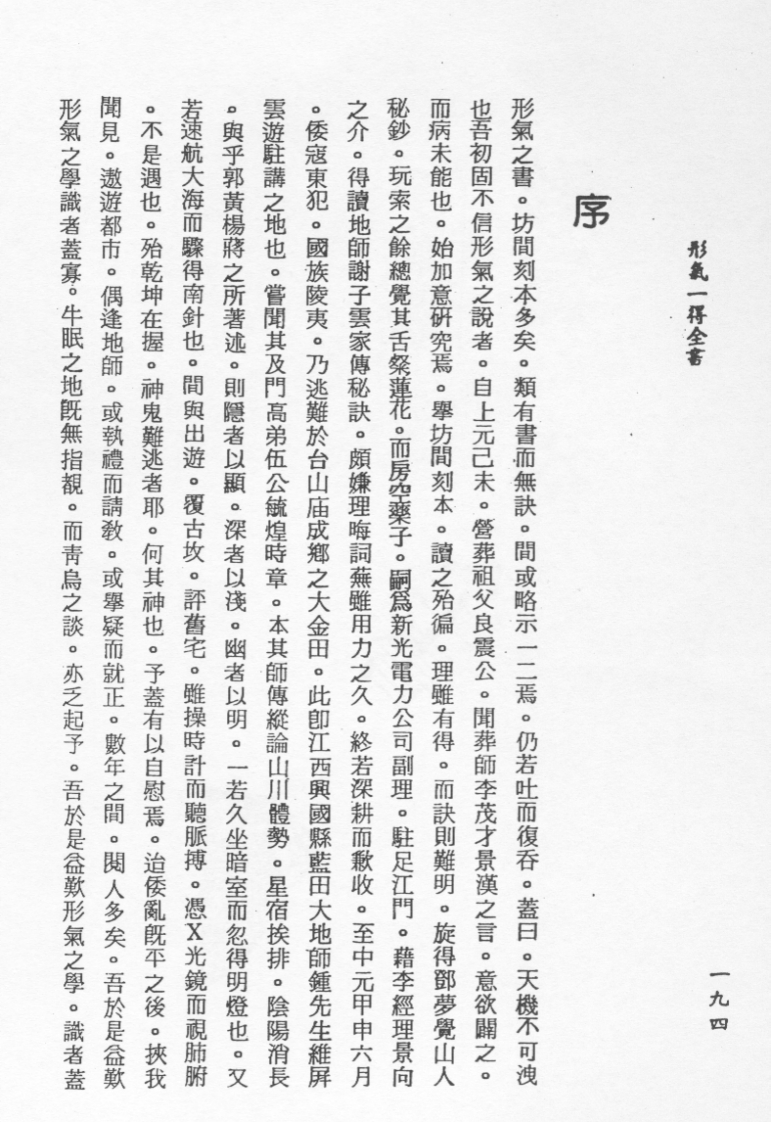 形氣一得全書
一九四
序
形氣之書。坊間刻本多矣。類有書而無訣。間或略示一二焉。仍若吐而復吞。蓋曰。天機不可洩
也吾初固不信形氣之說者。自上元己未。營葬祖父良震公。聞葬師李茂才景漢之言。意欲闢之。
而病未能也。始加意研究焉。舉坊間刻本。讀之殆徧。理雖有得。而訣則難明。旋得鄧夢覺山人
秘鈔。玩索之餘總覺其舌粲蓮花。而房空藥子。嗣爲新光電力公司副理。駐足江門。藉李經理景向
之介。得讀地師謝子雲家傳秘訣。頗嫌理晦詞蕪雖用力之久。終若深耕而歉收。至中元甲申六月
。倭寇東犯。國族陵夷。乃逃難於台山庙成鄉之大金田。此卽江西興國縣藍田大地師鍾先生維屛
雲遊駐講之地也。嘗聞其及門高弟伍公毓煌時章。本其師傳縱論山川體勢。星宿挨排。陰陽消長
。與乎郭黃楊蔣之所著述。則隱者以顯。深者以淺。幽者以明。一若久坐暗室而忽得明燈也。又
若速航大海而驟得南針也。間與出遊。覆古坟。評舊宅。雖操時計而聽脈搏。憑X光鏡而視肺腑
。不是過也。殆乾坤在握。神鬼難逃者耶。何其神也。予蓋有以自慰焉。迨倭亂旣平之後。挾我
聞見。遨遊都市。偶逢地師。或執禮而請敎。或舉疑而就正。數年之間。閱人多矣。吾於是益歎
形氣之學識者蓋寡。牛眠之地旣無指覩。而靑烏之談。亦乏起予。吾於是益歎形氣之學。識者蓋